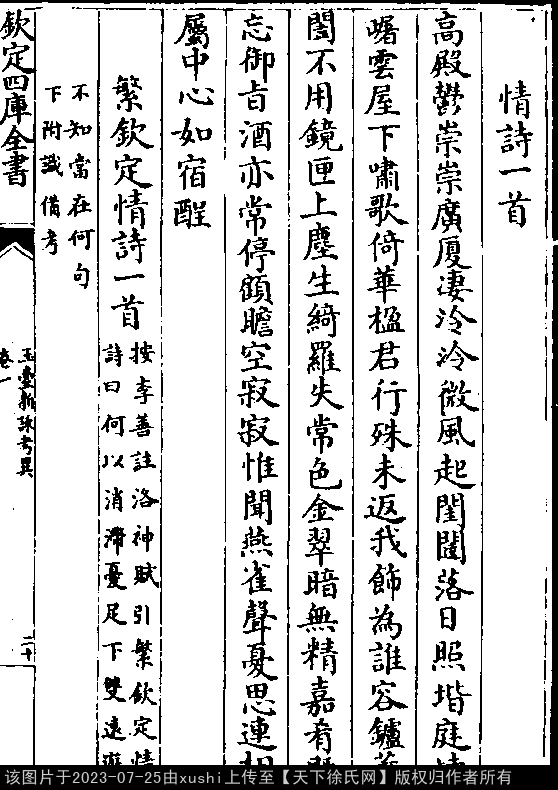 情詩一首
高殿鬱崇崇廣厦凄泠泠微風起閨闥落日照堦庭
𨇤雲屋下嘯歌倚華楹君行殊未返我飾為誰容鑪
闔不用鏡匣上塵生綺羅失常色金翠暗無精嘉肴
忘御㫖酒亦常停顧瞻空寂寂惟聞燕雀聲憂思連相
屬中心如宿酲
繁欽定情詩一首
按李善註洛神賦引繁欽定情
詩曰何以消滯憂足下雙遠
不知當在何句
下附識備考
欽定四庫全書
玉臺新詠考異
卷一
二十
该图片于2023-07-25由xushi上传至【天下徐氏网】版权归作者所有